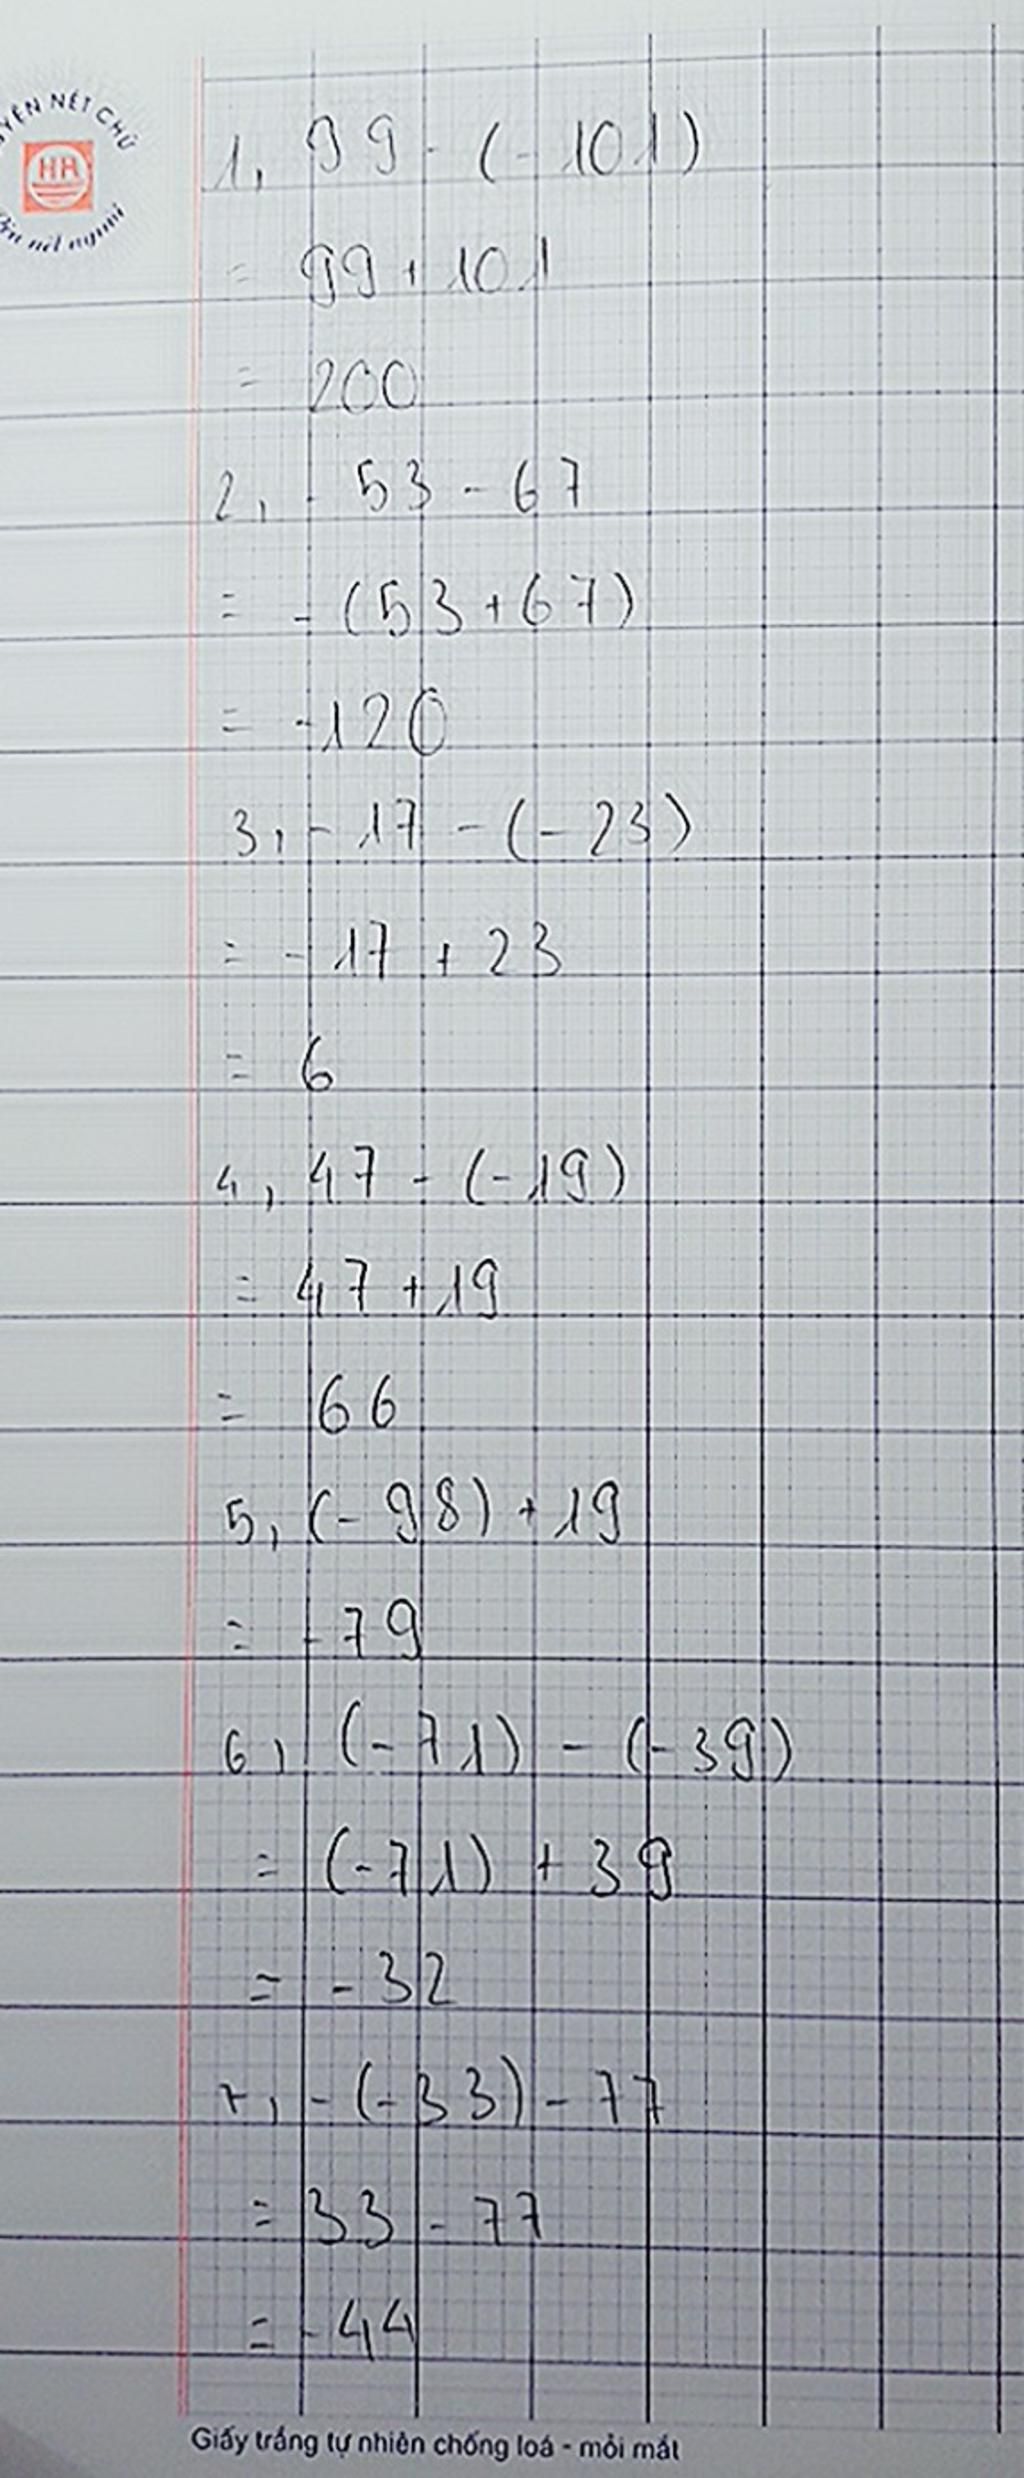 YỆN NÉT CHỮ
HH
nết người
1, 99 - (-101)
= 99 + 101
= 200
2, - 53 - 67
= - (53 + 67)
= -120
3, - 17 - (- 23)
= - 17 + 23
= 6
4, 47 - (-19)
= 47 + 19
= 66
5, (- 98) + 19
= - 79
6, (-71) - (-39)
= (-71) + 39
= - 32
7, - (-33) - 77
= 33 - 77
= - 44
Giấy trắng tự nhiên chống loá - mỏi mắt